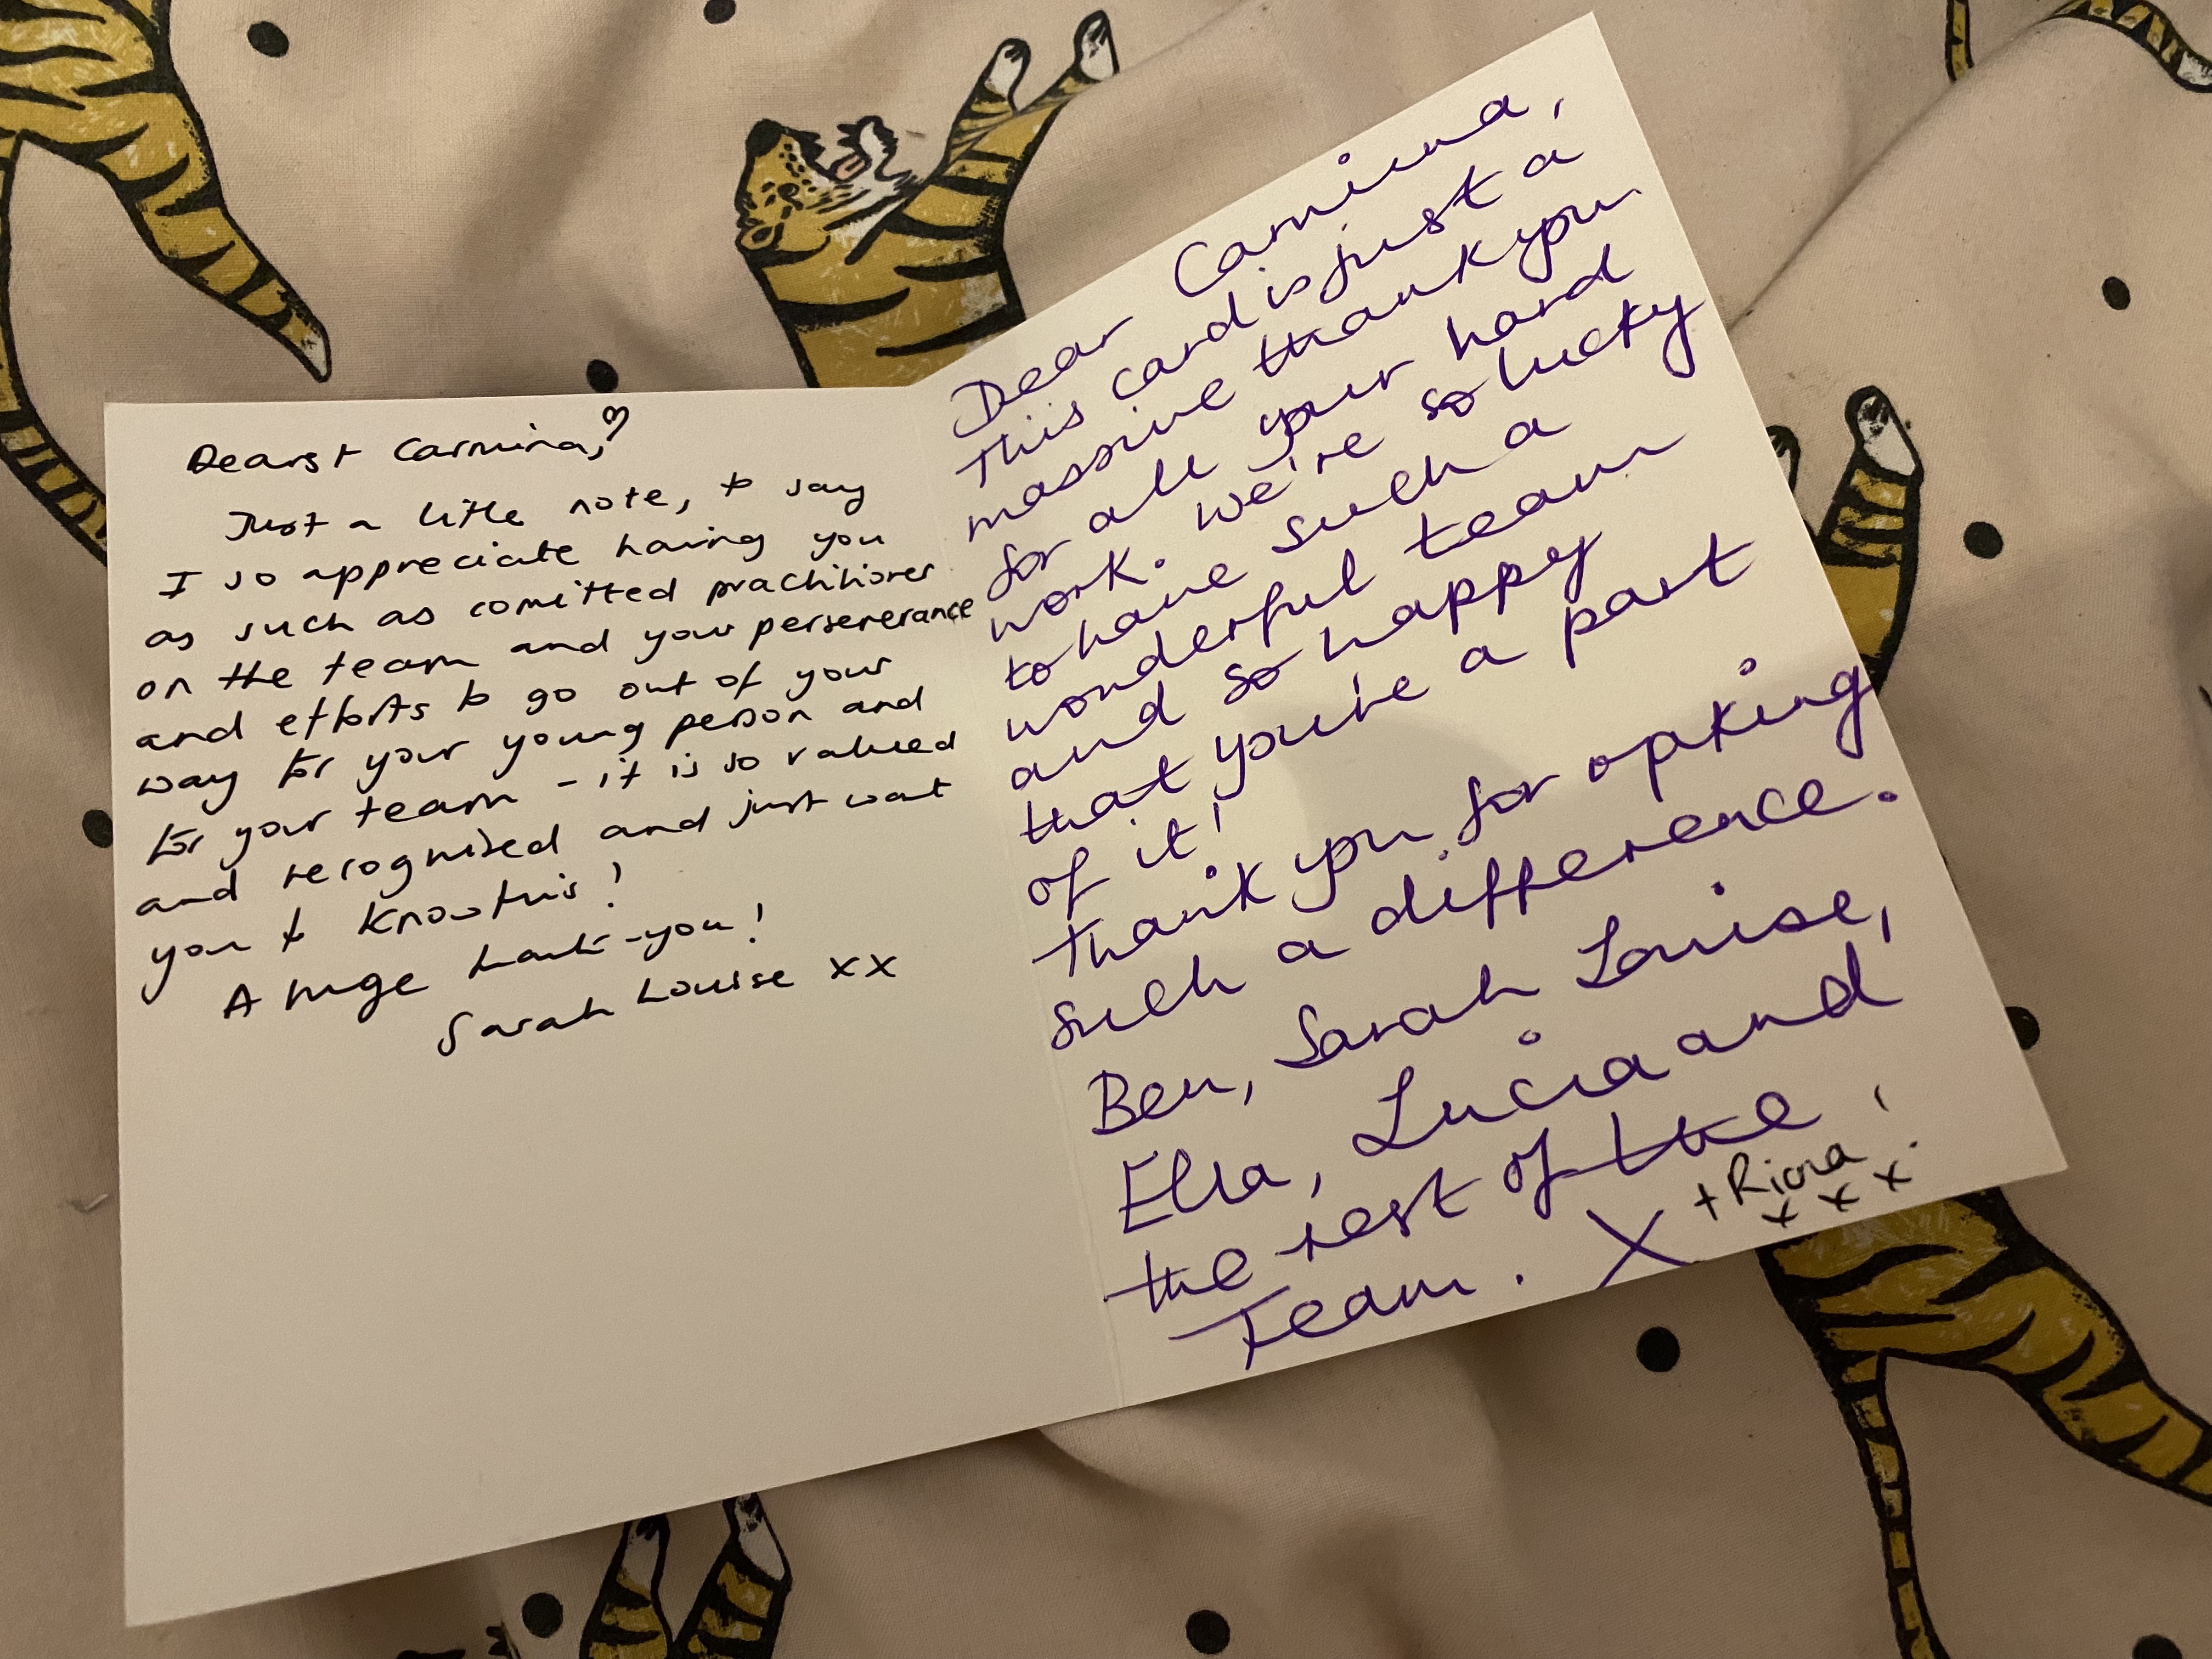 Dearest Carmina, ♡
Just a little note, to say
I so appreciate having you
as such as comitted practitioner
on the team and your perserverance
and efforts to go out of your
way for your young person and
for your team - it is so valued
and recognised and just want
you to know this!
A huge thank-you!
Sarah Louise xx
Dear Carmina,
This card is just a
massive thank you
for all your hard
work. We're so lucky
to have such a
wonderful team
and so happy
that you're a part
of it!
Thank you for making
such a difference.
Ben, Sarah Louise,
Ella, Lucia and
the rest of the
Team. X
+
x x x